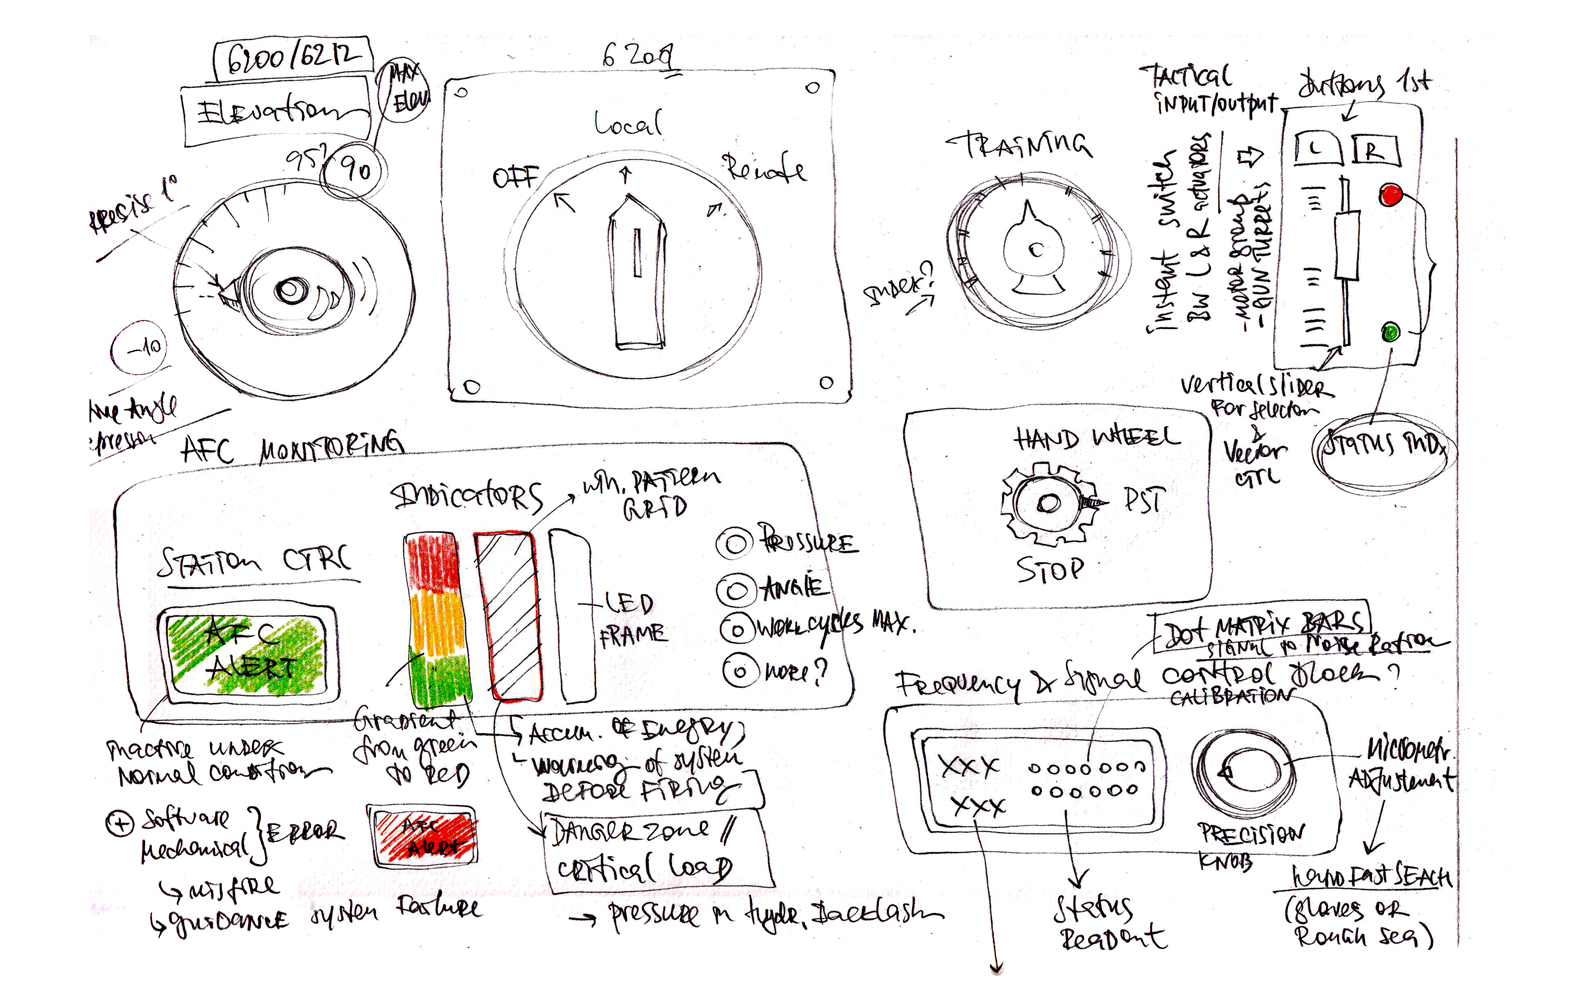 6200/6212
Elevation
MAX
Elev.
95?
90
precise 1°
-10
Angle
6209
Local
OFF
Remote
TRAINING
index?
TACTICAL
INPUT/OUTPUT
Buttons 1st
L
R
instant switch
BW L & R actuators
-Motor group
-GUN TURRETS
Vertical slider
For selector
&
Vector
CTRL
Status IND.
AFC MONITORING
STATION CTRL
AFC
ALERT
Indicators
PATTERN
GRID
LED
FRAME
PRESSURE
ANGLE
WORK.cycles MAX.
MORE?
inactive under
Normal condition
+ Software
Mechanical } ERROR
↳ misfire
↳ GUIDANCE system Failure
Gradient
from green
to RED
AFC
Alert
Accum. OF Energy
Warning of system
BEFORE FIRING
DANGER zone //
critical LOAD
→ pressure in hydr. Backlash
HAND WHEEL
PST
STOP
DOT MATRIX BARS
SIGNAL to Noise Ration
Frequency & Signal control Block?
CALIBRATION
XXX
XXX
PRECISION
KNOB
Micrometr.
ADJUSTEMENT
Status
ReaDout
(gloves OR
Rough sea)